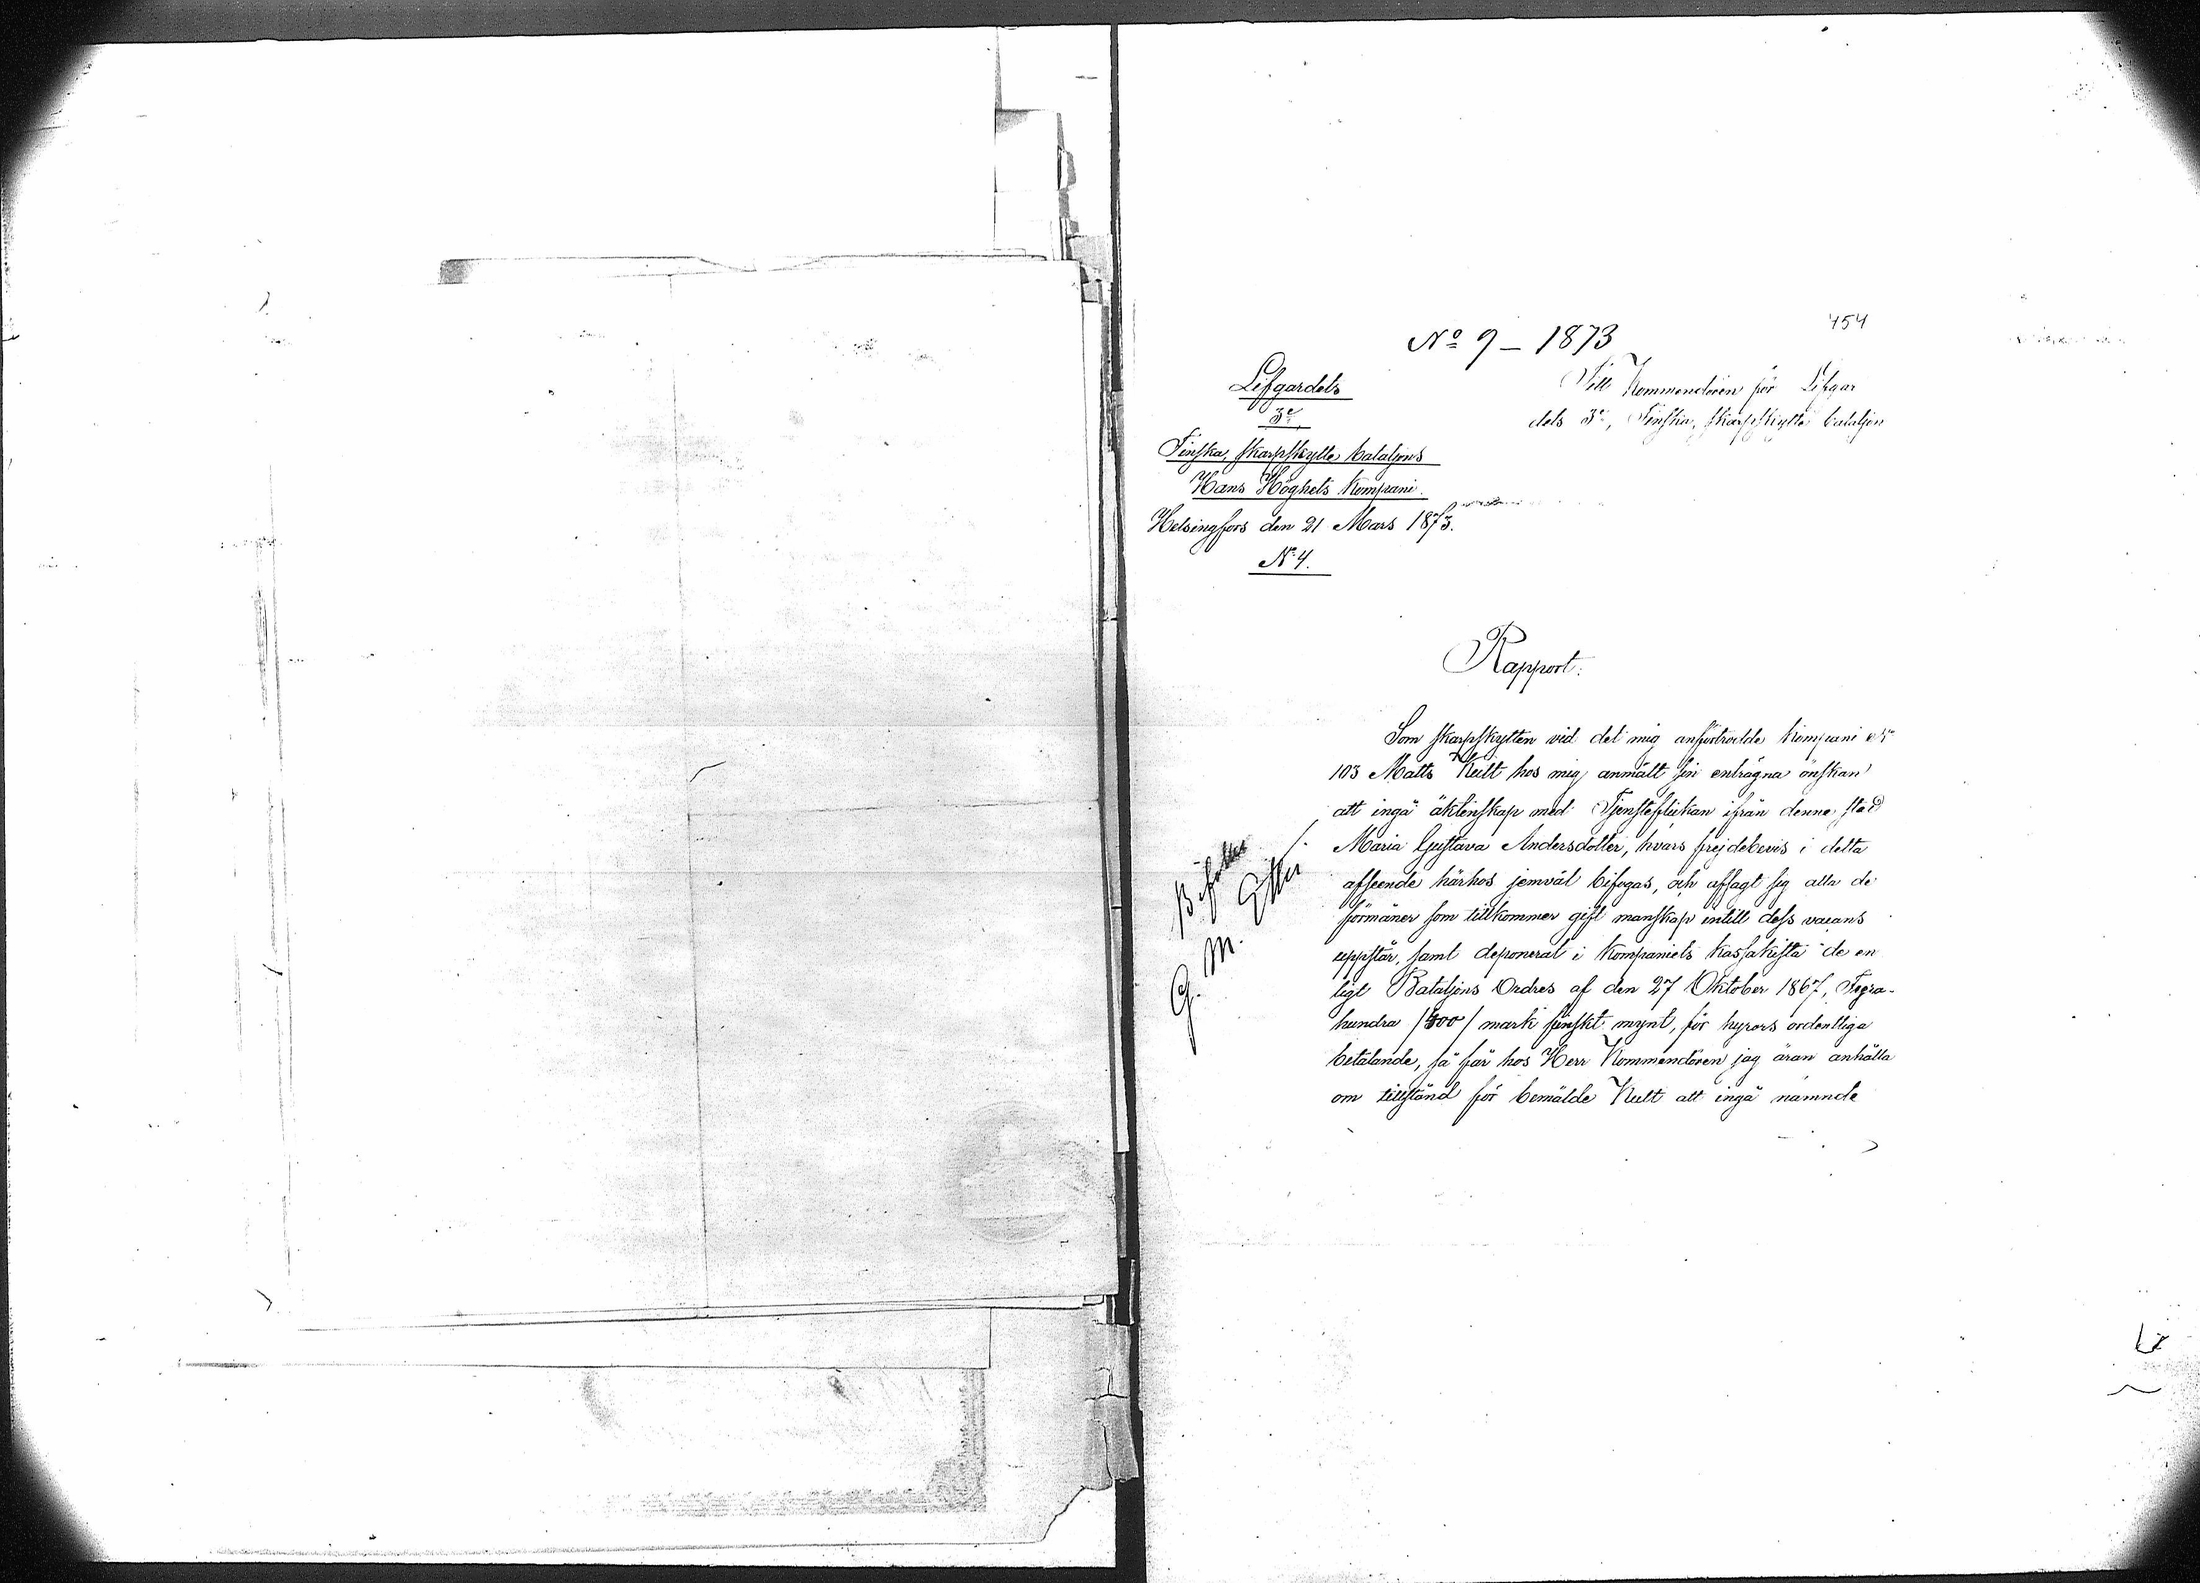 454
No 9 – 1873
Lifgardets
3e
Finska, skarpskytte bataljons
Hans Höghets Kompani.
Helsingfors den 21 Mars 1873.
No 4.
Till Kommendören för Lifgar
dets 3e, Finska, skarpskytte bataljon
Rapport.
Som skarpskytten vid det mig anförtrodde kompani No
103 Matts Kult hos mig anmält sin enträgna önskan
att ingå äktenskap med Tjensteflickan ifrån denne stad
Maria Gustava Andersdotter, hvars frejdebevis i detta
afseende härhos jemväl bifogas, och afsagt sig alla de
förmåner som tillkommer gift manskap intill dess vacans
uppstår, samt deponerat i kompaniets kassakista de en
ligt Bataljons Ordres af den 27 Oktober 1867, Fyra-
hundra /400/ mark finskt mynt, för hyrors ordentliga
betalande, så får hos Herr Kommendören jag äran anhålla
om tillstånd för bemälde Kult att ingå nämnde
G. M.